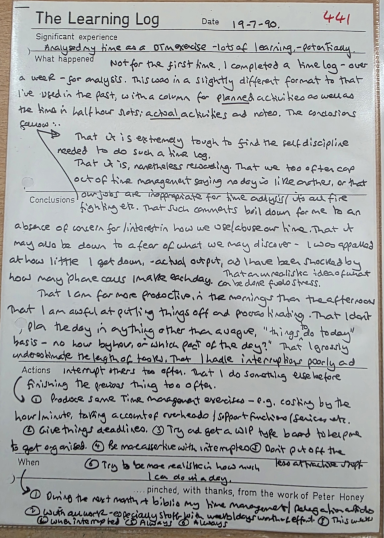 The Learning Log Date 19-7-90. 441
Significant experience
Analysed my time as a DTM exercise - lots of learning, - potentially
What happened Not for the first time, I completed a time log - over
a week - for analysis. This was in a slightly different format to that
I've used in the past, with a column for planned activities as well as
the time in half hour slots; actual activities and notes. The conclusions
follow :-
That it is extremely tough to find the self discipline
needed to do such a time log.
That it is, nonetheless rewarding. That we too often cop
out of time management saying no day is like another, or that
our jobs are inappropriate for time analysis/its all fire
Conclusions fighting etc. That such comments boil down for me to an
absence of concern for/interest in how we use/abuse our time. That it
may also be down to a fear of what we may discover - I was appalled
at how little I get down, -actual output, and have been shocked by
how many phone calls I make each day. That an unrealistic idea of what can be done fuels stress.
That I am far more productive in the mornings than the afternoons
That I am awful at putting things off and procrastinating. That I don't
plan the day in anything other than a vague, "things to do today"
basis - no hour by hour or which part of the day?" That I grossly
underestimate the length of tasks. That I handle interruptions poorly and
Actions interrupt others too often. That I do something else before
finishing the previous thing too often.
① Produce some Time management exercises - e.g. costing by the
hour/minute, taking account of overheads / support functions/services etc.
② Give things deadlines. ③ Try and get a WIP type board to help me
to get organised. ④ Be more assertive with interruptees ⑤ Don't put off the
less attractive stuff
When ⑥ Try to be more realistic in how much
I can do in a day.
...pinched, with thanks, from the work of Peter Honey
① During the next month + biblio my time management/delegation articles
② With all work - especially stuff
④ when interrupted ⑤ Always ⑥ Always